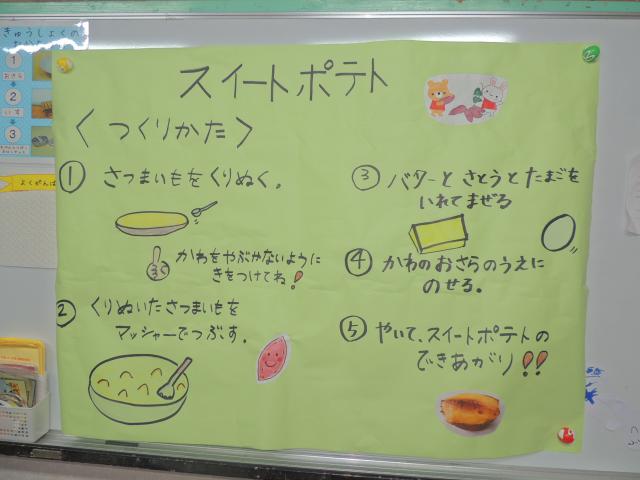 きゅうしょくの
1
2
3
スイートポテト
〈つくりかた〉
① さつまいもをくりぬく。
かわをやぶかないように
きをつけてね!
② くりぬいたさつまいもを
マッシャーでつぶす。
③ バターとさとうとたまごを
いれてまぜる
④ かわのおさらのうえに
のせる。
⑤ やいて、スイートポテトの
できあがり!!